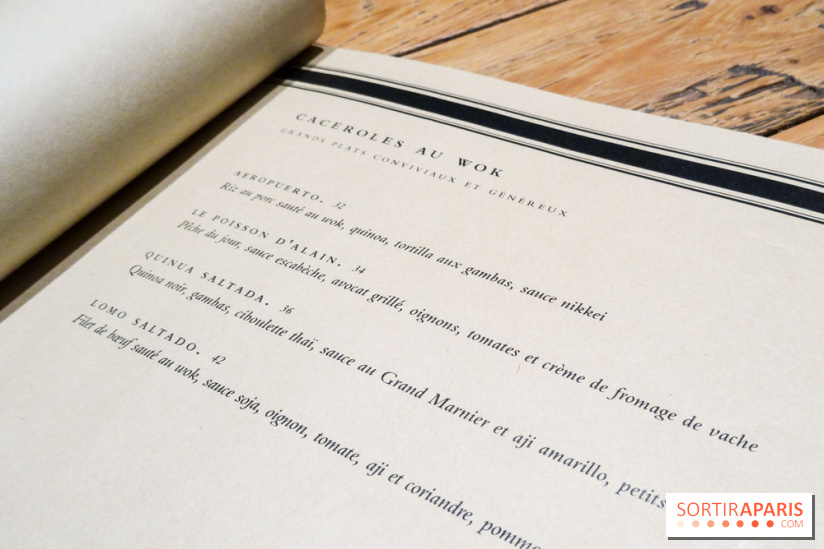 CACEROLES AU WOK
GRANDS PLATS CONVIVIAUX ET GÉNÉREUX
AEROPUERTO. 32
Riz au porc sauté au wok, quinoa, tortilla aux gambas, sauce nikkei
LE POISSON D'ALAIN. 34
Pêche du jour, sauce escabèche, avocat grillé, oignons, tomates et crème de fromage de vache
QUINUA SALTADA. 36
Quinoa noir, gambas, ciboulette thaï, sauce au Grand Marnier et aji amarillo, petits
LOMO SALTADO. 42
Filet de bœuf sauté au wok, sauce soja, oignon, tomate, aji et coriandre, pomme
SORTIRAPARIS
.COM